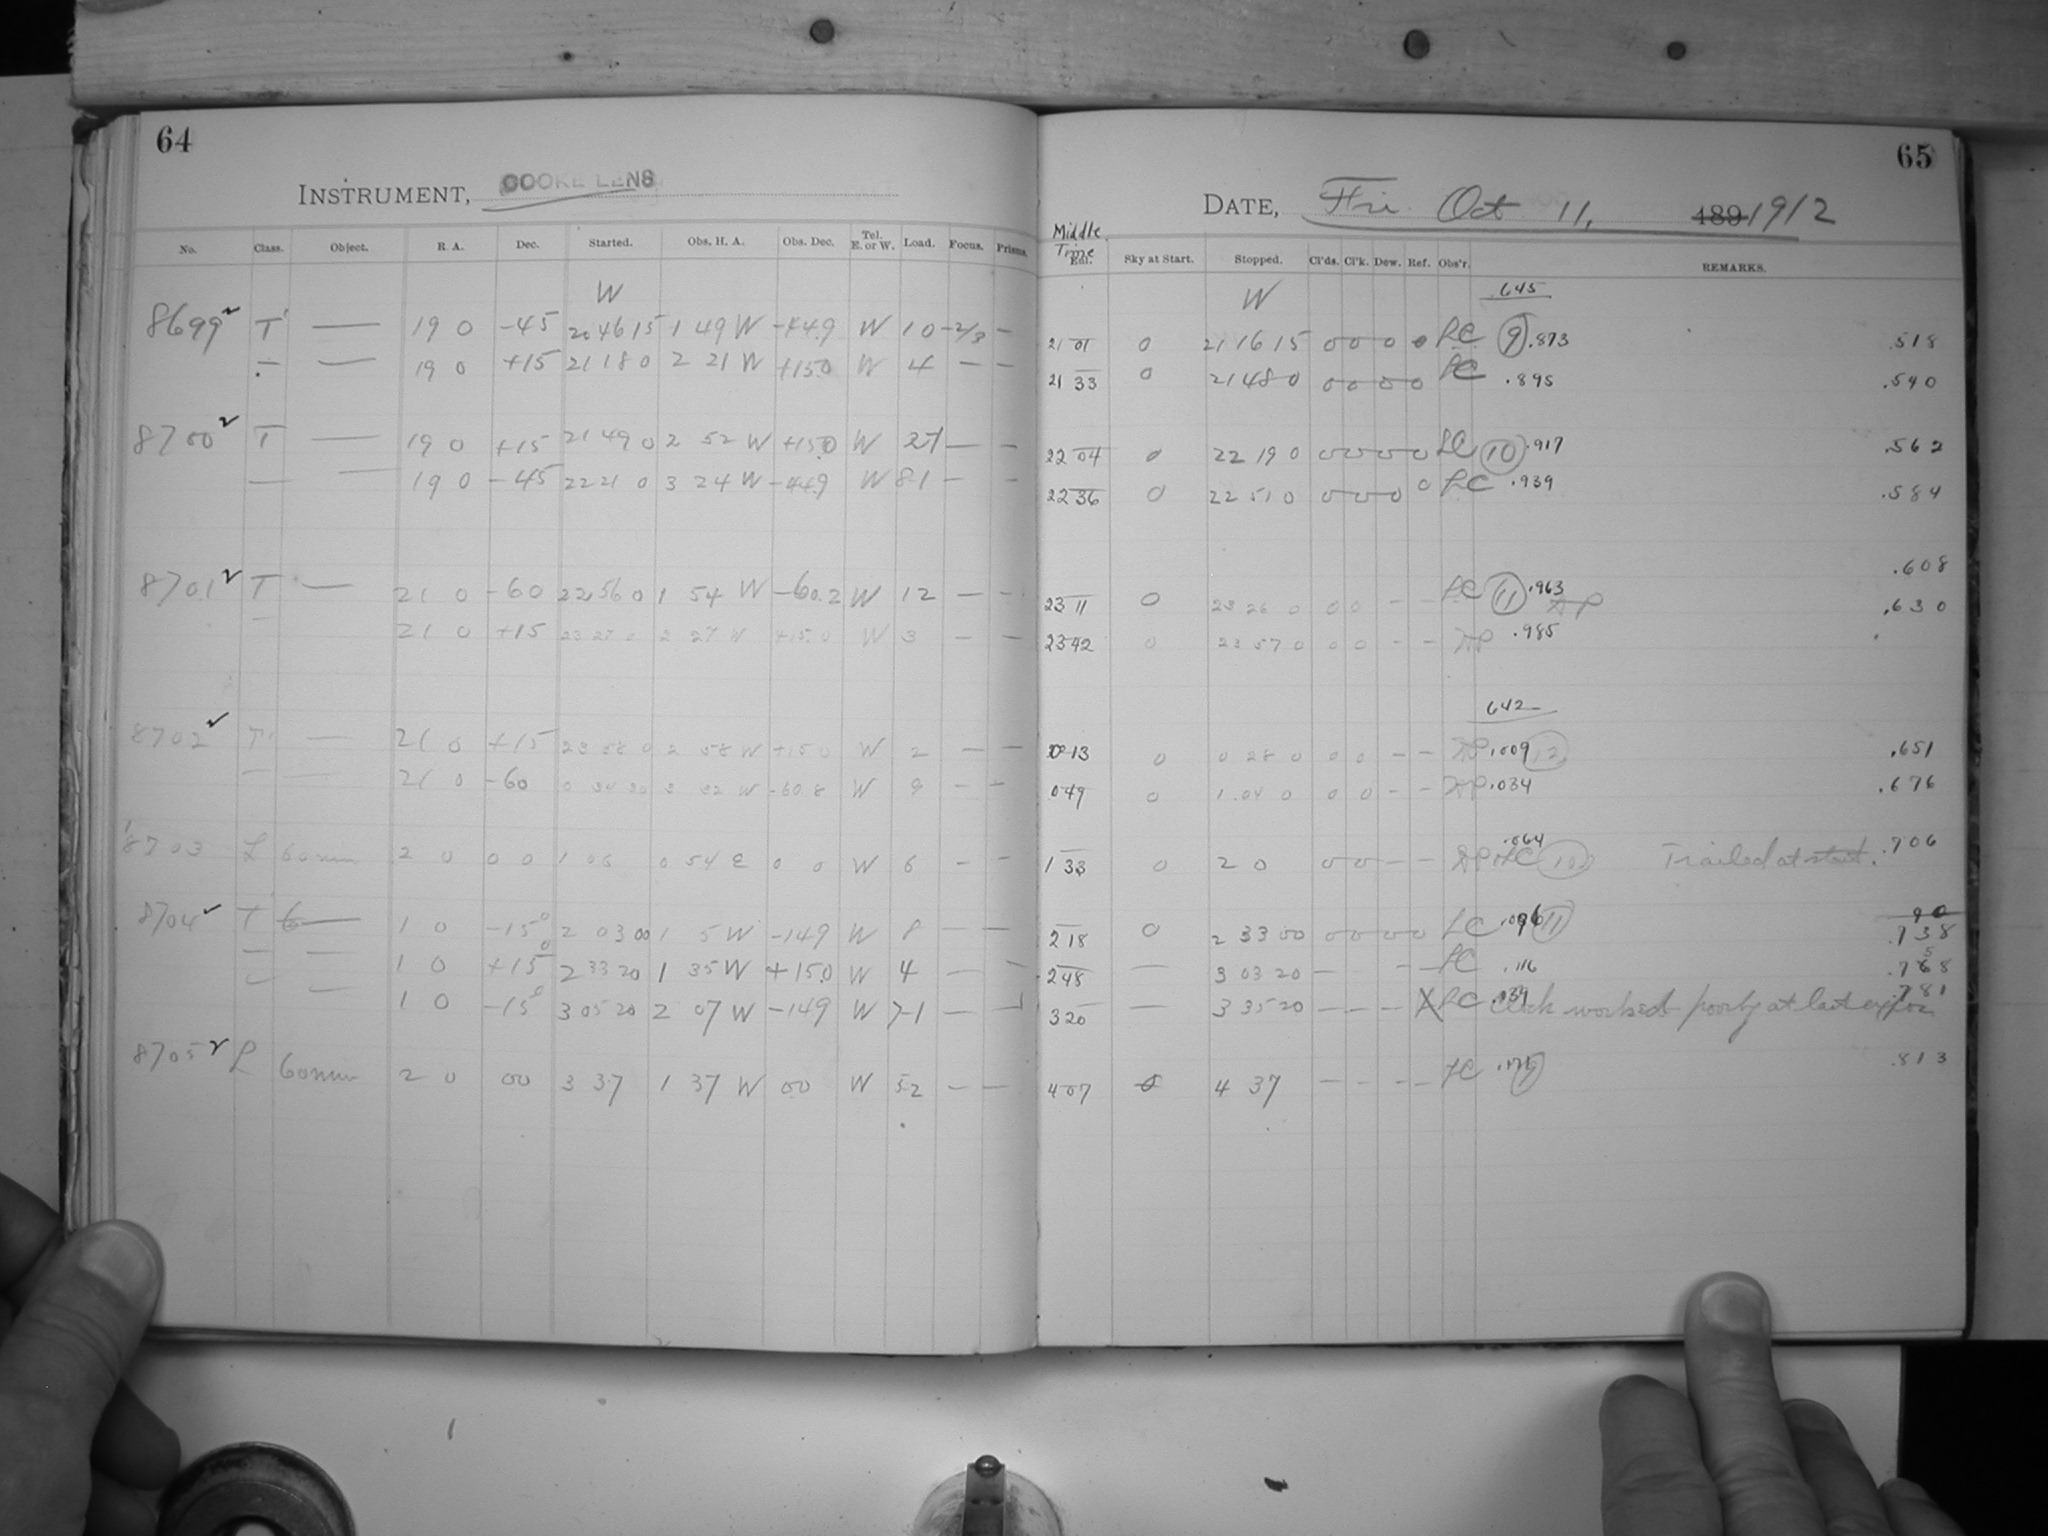 64
INSTRUMENT, COOKE LENS
No. Class. Object. R. A. Dec. Started. Obs. H. A. Obs. Dec. Tel. E. or W. Load. Focus. Prisms.
W
8699 T — 19 0 -45 20 46 15 1 49 W -44.9 W 10 -2/3 —
— — 19 0 +15 21 18 0 2 21 W +15.0 W 4 — —
8700 T — 19 0 +15 21 49 0 2 52 W +15.0 W 27 — —
— — 19 0 -45 22 21 0 3 24 W -44.9 W 81 — —
8701 T — 21 0 -60 22 56 0 1 54 W -60.2 W 12 — —
— 21 0 +15 23 27 0 2 27 W +15.0 W 3 — —
8702 T — 21 0 +15 23 58 0 2 58 W +15 0 W 2 — —
— — 21 0 -60 0 34 20 3 32 W -60.8 W 9 — —
8703 L 60 min 2 0 0 0 1 06 0 54 E 0 0 W 6 — —
8704 T 1 0 -15 2 03 00 1 5 W -14.9 W 8 — —
— — 1 0 +15 2 33 20 1 35 W +15.0 W 4 — —
— — 1 0 -15 3 05 20 2 07 W -14.9 W 7-1 — —
8705 L 60 min 2 0 00 3 37 1 37 W 00 W 52 — —
65
DATE, Fri. Oct 11, 189 1912
Middle Time
Ent. Sky at Start. Stopped. Cl'ds. Cl'k. Dew. Ref. Obs'r. REMARKS.
W .645
21 01 0 21 16 15 0 0 0 0 LC 9 .873 .518
21 33 0 21 48 0 0 0 0 0 LC .895 .540
22 04 0 22 19 0 0 0 0 0 LC 10 .917 .562
22 36 0 22 51 0 0 0 0 0 LC .939 .584
.608
23 11 0 23 26 0 0 0 — — LC 11 .963 .630
23 42 0 23 57 0 0 0 — — .985
642
0 13 0 0 28 0 0 0 — — .009 12 .651
0 49 0 1 04 0 0 0 — — .034 .676
1 33 0 2 0 0 0 — — .064 10 Trailed at start. .706
90
2 18 0 2 33 00 0 0 0 0 LC .096 11 .738
2 48 — 3 03 20 — — — LC .116
3 20 — 3 35 20 — — — X LC .139 Clock worked poorly at last expos .781
4 07 0 4 37 — — — — LC .813